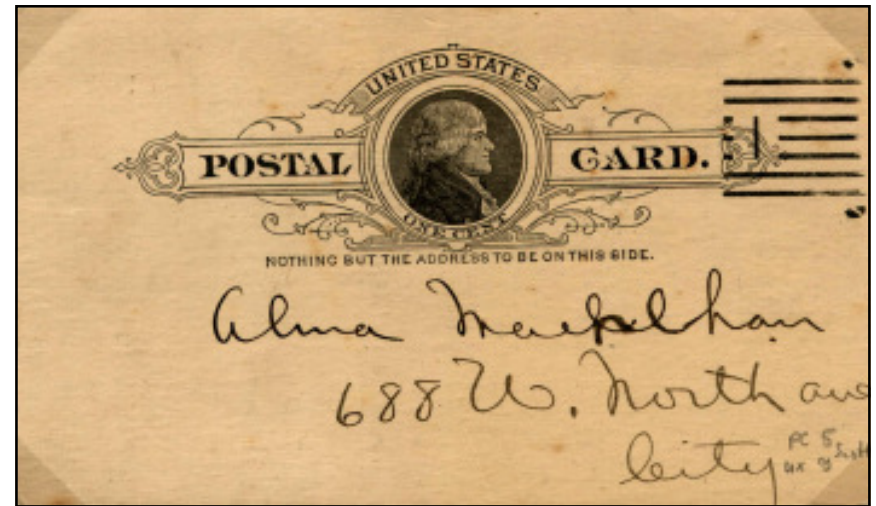 UNITED STATES
POSTAL CARD.
ONE CENT
NOTHING BUT THE ADDRESS TO BE ON THIS SIDE.
Alma
688 W. North ave
City
PC 5
ux 9 Scott